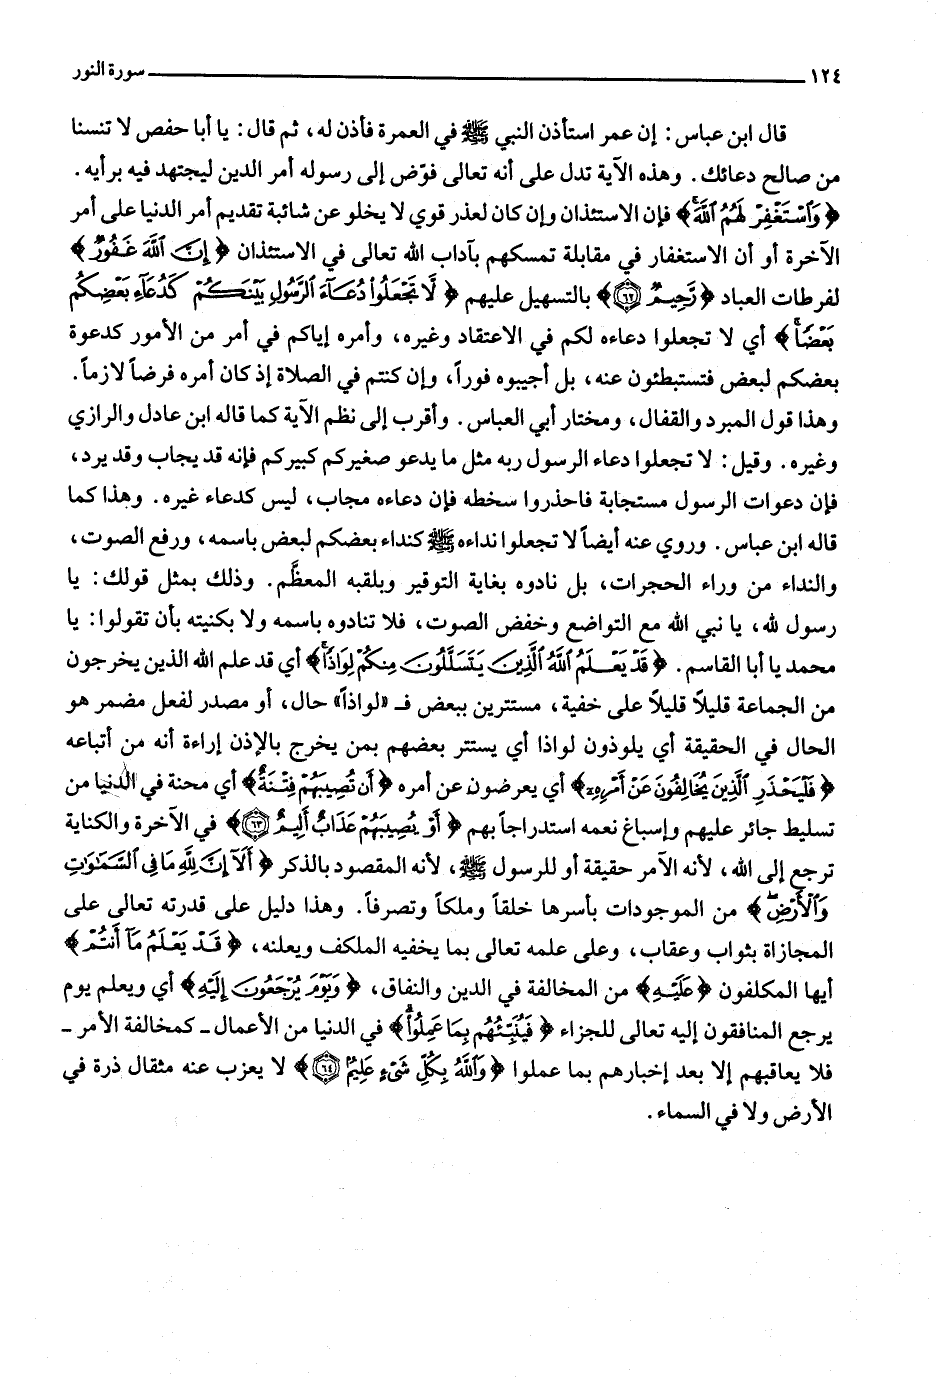 ١٢٤ سورة النور
قال ابن عباس: إن عمر استأذن النبي ﷺ في العمرة فأذن له، ثم قال: يا أبا حفص لا تنسنا
من صالح دعائك. وهذه الآية تدل على أنه تعالى فوّض إلى رسوله أمر الدين ليجتهد فيه برأيه.
﴿وَٱسْتَغْفِرْ لَهُمُ ٱللَّهَۚ﴾ فإن الاستئذان وإن كان لعذر قوي لا يخلو عن شائبة تقديم أمر الدنيا على أمر
الآخرة أو أن الاستغفار في مقابلة تمسكهم بآداب الله تعالى في الاستئذان ﴿إِنَّ ٱللَّهَ غَفُورٌ﴾
لفرطات العباد ﴿رَّحِيمٌ ٦٢﴾ بالتسهيل عليهم ﴿لَّا تَجْعَلُوا۟ دُعَآءَ ٱلرَّسُولِ بَيْنَكُمْ كَدُعَآءِ بَعْضِكُم
بَعْضًاۚ﴾ أي لا تجعلوا دعاءه لكم في الاعتقاد وغيره، وأمره إياكم في أمر من الأمور كدعوة
بعضكم لبعض فتستبطئون عنه، بل أجيبوه فوراً، وإن كنتم في الصلاة إذ كان أمره فرضاً لازماً.
وهذا قول المبرد والقفال، ومختار أبي العباس. وأقرب إلى نظم الآية كما قاله ابن عادل والرازي
وغيره. وقيل: لا تجعلوا دعاء الرسول ربه مثل ما يدعو صغيركم كبيركم فإنه قد يجاب وقد يرد،
فإن دعوات الرسول مستجابة فاحذروا سخطه فإن دعاءه مجاب، ليس كدعاء غيره. وهذا كما
قاله ابن عباس. وروي عنه أيضاً لا تجعلوا نداءه ﷺ كنداء بعضكم لبعض باسمه، ورفع الصوت،
والنداء من وراء الحجرات، بل نادوه بغاية التوقير وبلقبه المعظَّم. وذلك بمثل قولك: يا
رسول لله، يا نبي الله مع التواضع وخفض الصوت، فلا تنادوه باسمه ولا بكنيته بأن تقولوا: يا
محمد يا أبا القاسم. ﴿قَدْ يَعْلَمُ ٱللَّهُ ٱلَّذِينَ يَتَسَلَّلُونَ مِنكُمْ لِوَاذًاۚ﴾ أي قد علم الله الذين يخرجون
من الجماعة قليلاً قليلاً على خفية، مستترين ببعض فـ «لواذاً» حال، أو مصدر لفعل مضمر هو
الحال في الحقيقة أي يلوذون لواذا أي يستتر بعضهم بمن يخرج بالإذن إراءة أنه من أتباعه
﴿فَلْيَحْذَرِ ٱلَّذِينَ يُخَالِفُونَ عَنْ أَمْرِهِۦ﴾ أي يعرضون عن أمره ﴿أَن تُصِيبَهُمْ فِتْنَةٌ﴾ أي محنة في الدنيا من
تسليط جائر عليهم وإسباغ نعمه استدراجاً بهم ﴿أَوْ يُصِيبَهُمْ عَذَابٌ أَلِيمٌ ٦٣﴾ في الآخرة والكناية
ترجع إلى الله، لأنه الأمر حقيقة أو للرسول ﷺ، لأنه المقصود بالذكر ﴿أَلَآ إِنَّ لِلَّهِ مَا فِى ٱلسَّمَـٰوَٰتِ
وَٱلْأَرْضِۖ﴾ من الموجودات بأسرها خلقاً وملكاً وتصرفاً. وهذا دليل على قدرته تعالى على
المجازاة بثواب وعقاب، وعلى علمه تعالى بما يخفيه الملكف ويعلنه، ﴿قَدْ يَعْلَمُ مَآ أَنتُمْ﴾
أيها المكلفون ﴿عَلَيْهِ﴾ من المخالفة في الدين والنفاق، ﴿وَيَوْمَ يُرْجَعُونَ إِلَيْهِ﴾ أي ويعلم يوم
يرجع المنافقون إليه تعالى للجزاء ﴿فَيُنَبِّئُهُم بِمَا عَمِلُوا۟ۗ﴾ في الدنيا من الأعمال - كمخالفة الأمر -
فلا يعاقبهم إلا بعد إخبارهم بما عملوا ﴿وَٱللَّهُ بِكُلِّ شَىْءٍ عَلِيمٌۢ ٦٤﴾ لا يعزب عنه مثقال ذرة في
الأرض ولا في السماء.